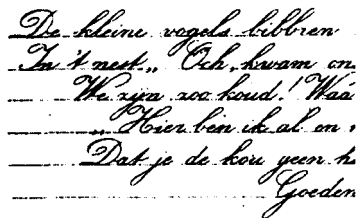 De kleine vogels bibbren
In 't nest „ Och, kwam on
We zijn zoo koud! Waá
„ Hier ben ik al en
Dat je de kou geen h
Goeden